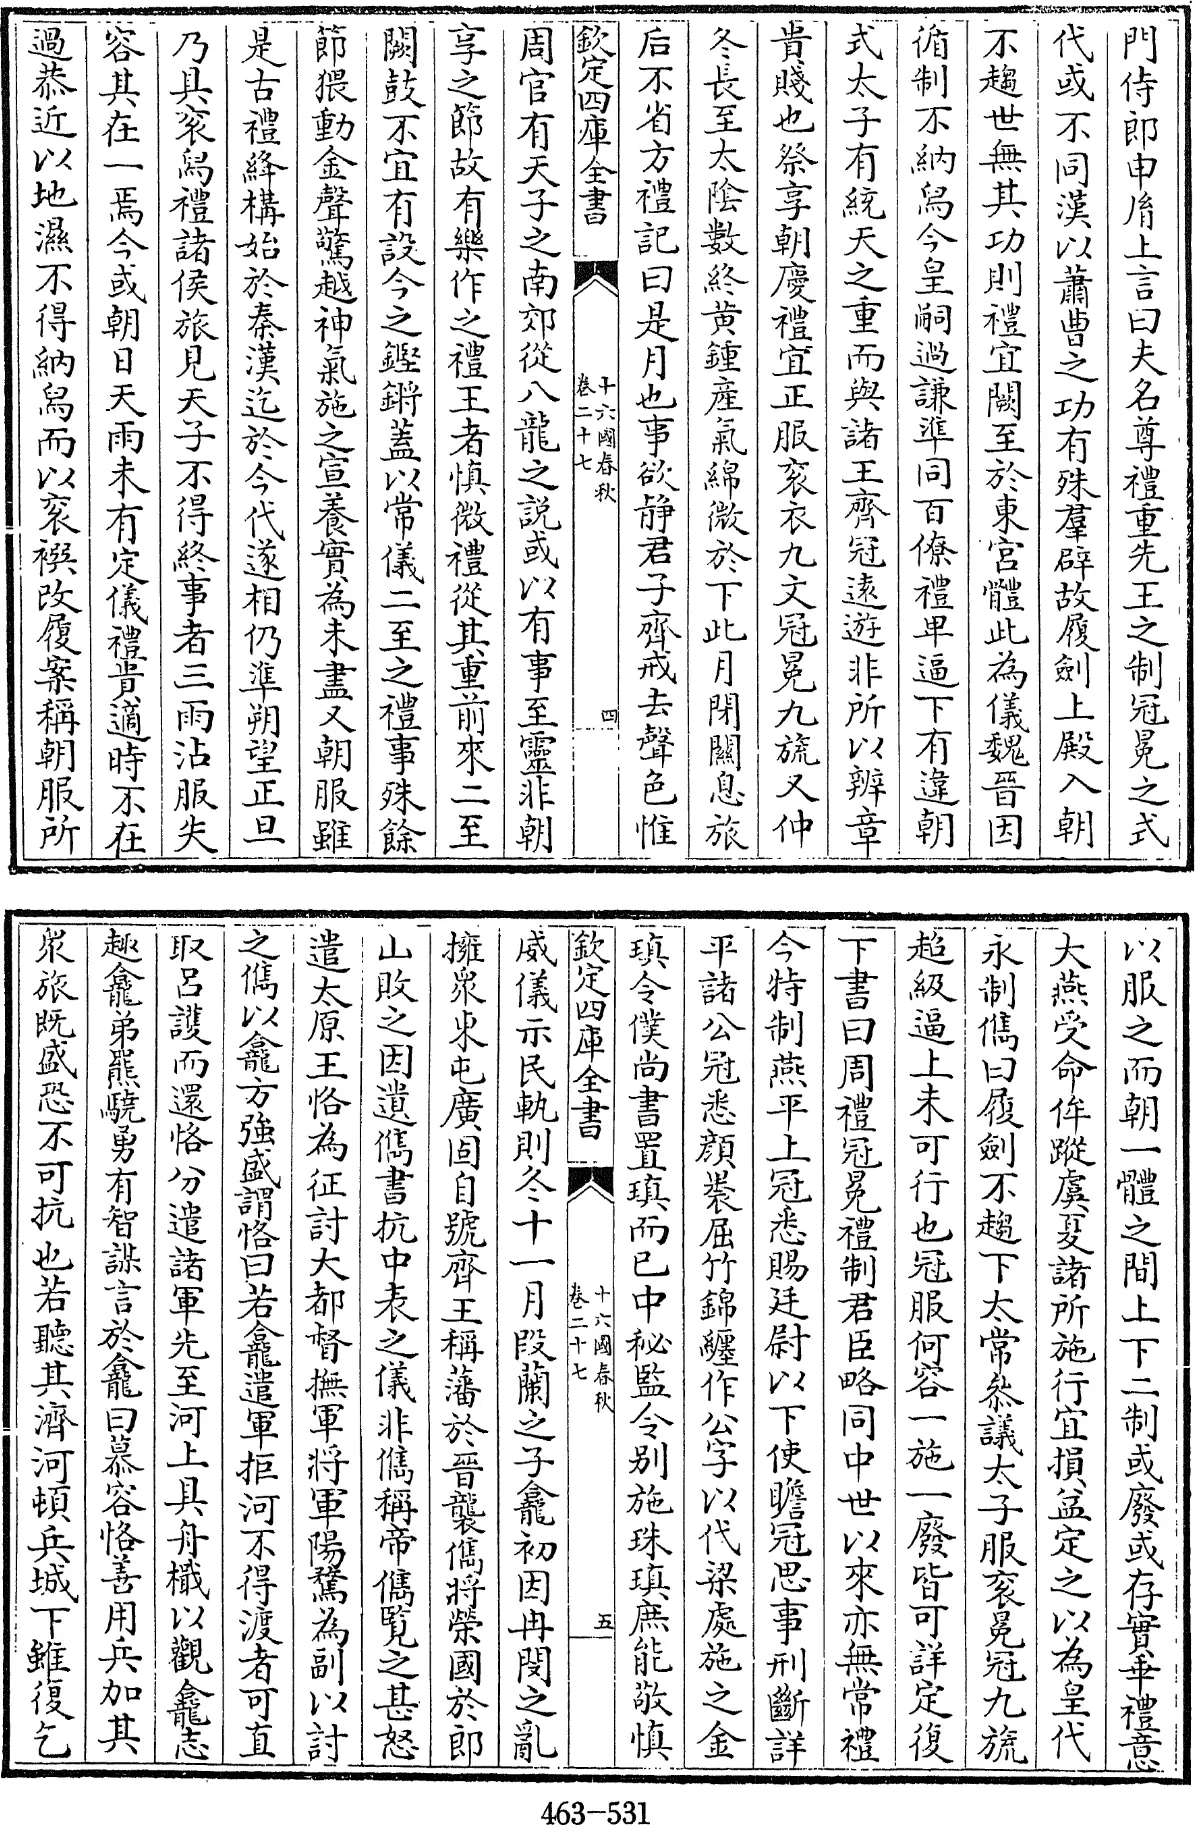 門侍郎申胤上言曰夫名尊禮重先王之制冠冕之式
代或不同漢以蕭曹之功有殊羣辟故履劍上殿入朝
不趨世無其功則禮宜闕至於東宮體此為儀魏晉因
循制不納舄今皇嗣過謙準同百僚禮卑逼下有違朝
式太子有統天之重而與諸王齊冠遠遊非所以辨章
貴賤也祭享朝慶禮宜正服衮衣九文冠冕九旒又仲
冬長至太陰數終黄鍾產氣綿微於下此月閉關息旅
后不省方禮記曰是月也事欲静君子齊戒去聲色惟
欽定四庫全書
十六國春秋
卷二十七
四
周官有天子之南郊從八龍之説或以有事至靈非朝
享之節故有樂作之禮王者慎微禮從其重前來二至
闕鼓不宜有設今之鏗鏘蓋以常儀二至之禮事殊餘
節猥動金聲驚越神氣施之宣養實為未盡又朝服雖
是古禮絳構始於秦漢迄於今代遂相仍準朔望正旦
乃具衮舄禮諸侯旅見天子不得終事者三雨沾服失
容其在一焉今或朝日天雨未有定儀禮貴適時不在
過恭近以地濕不得納舄而以衮襈改履案稱朝服所
以服之而朝一體之間上下二制或廢或存實乖禮意
大燕受命侔蹤虞夏諸所施行宜損益定之以為皇代
永制儁曰履劍不趨下太常叅議太子服衮冕冠九旒
超級逼上未可行也冠服何容一施一廢皆可詳定復
下書曰周禮冠冕禮制君臣略同中世以來亦無常禮
今特制燕平上冠悉賜廷尉以下使瞻冠思事刑斷詳
平諸公冠悉顔裳屈竹錦纏作公字以代梁處施之金
瑱令僕尚書置瑱而已中秘監令别施珠瑱庶能敬慎
欽定四庫全書
十六國春秋
卷二十七
五
威儀示民軌則冬十一月段蘭之子龕初因冉閔之亂
擁衆東屯廣固自號齊王稱藩於晉襲儁將榮國於郎
山敗之因遺儁書抗中表之儀非儁稱帝儁覽之甚怒
遣太原王恪為征討大都督撫軍將軍陽騖為副以討
之儁以龕方強盛謂恪曰若龕遣軍拒河不得渡者可直
取呂護而還恪分遣諸軍先至河上具舟檝以觀龕志
趣龕弟羆驍勇有智謀言於龕曰慕容恪善用兵加其
衆旅既盛恐不可抗也若聽其濟河頓兵城下雖復乞
463-531